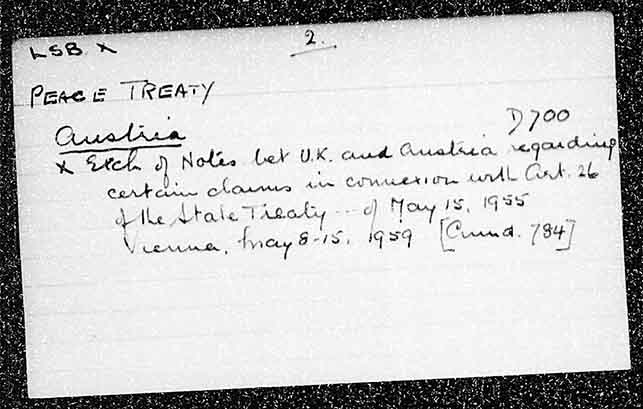 LSB. X
2.
PEACE TREATY
Austria
D700
X Exch of Notes bet U.K. and Austria regarding
certain claims in connexion with Art. 26
of the State Treaty... of May 15, 1955
Vienna, May 8-15, 1959 [Cmnd. 784]